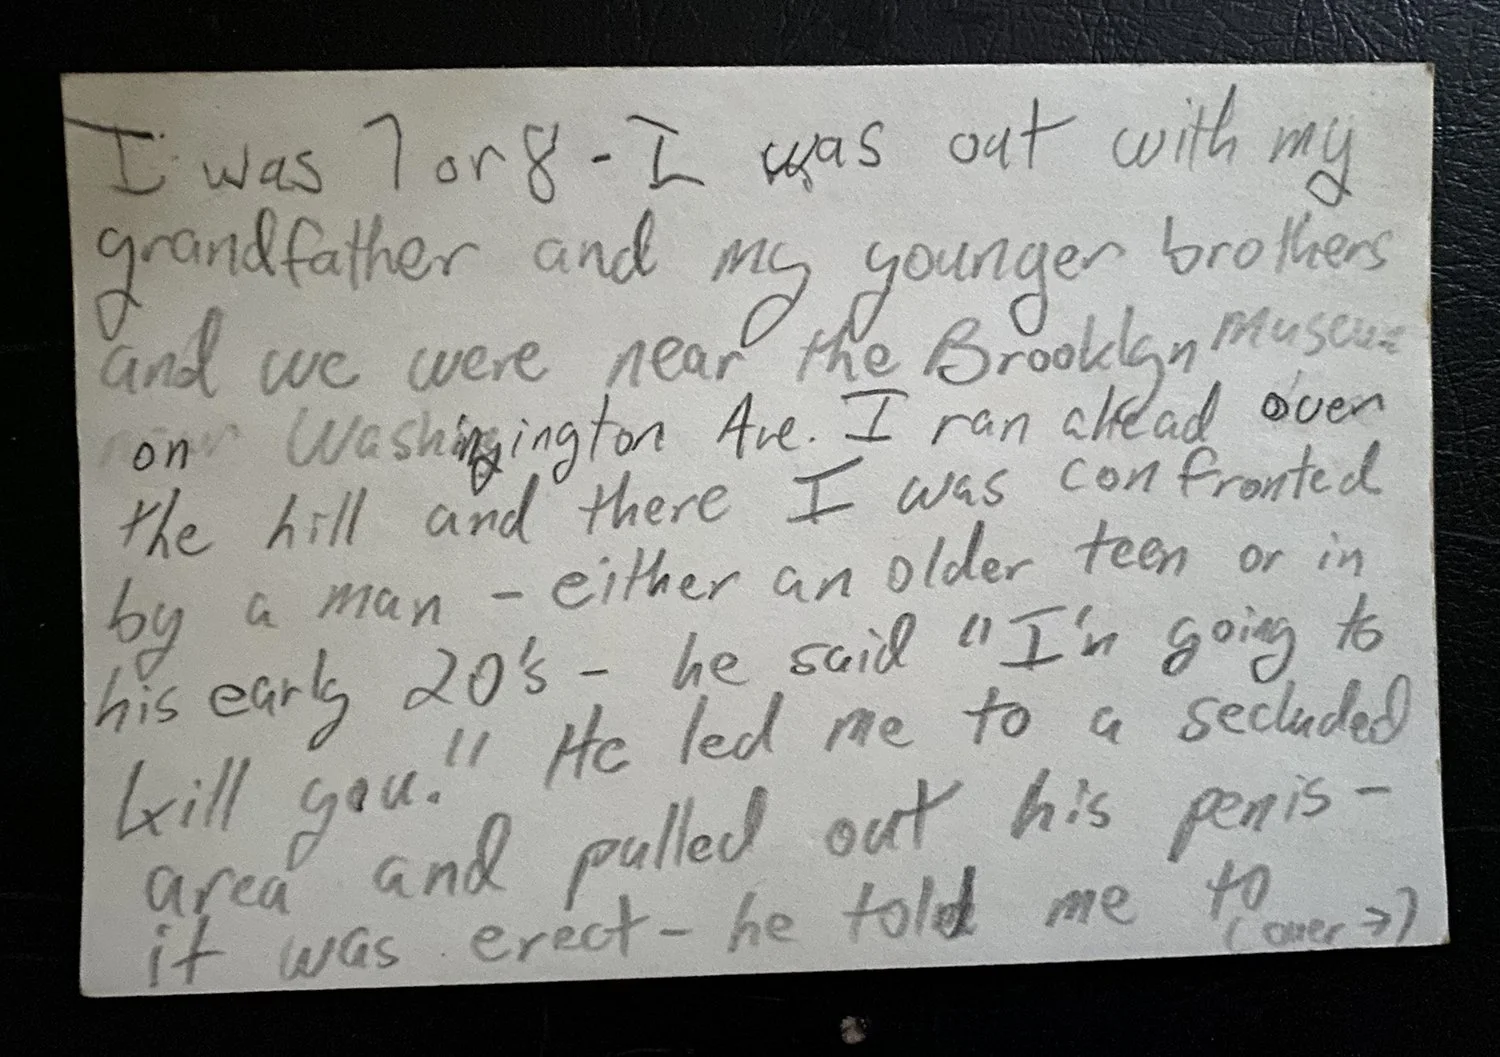 I was 7 or 8 - I was out with my
grandfather and my younger brothers
and we were near the Brooklyn Museum
on Washington Ave. I ran ahead over
the hill and there I was confronted
by a man - either an older teen or in
his early 20's - he said "I'm going to
kill you." He led me to a secluded
area and pulled out his penis -
it was erect - he told me to
(over →)